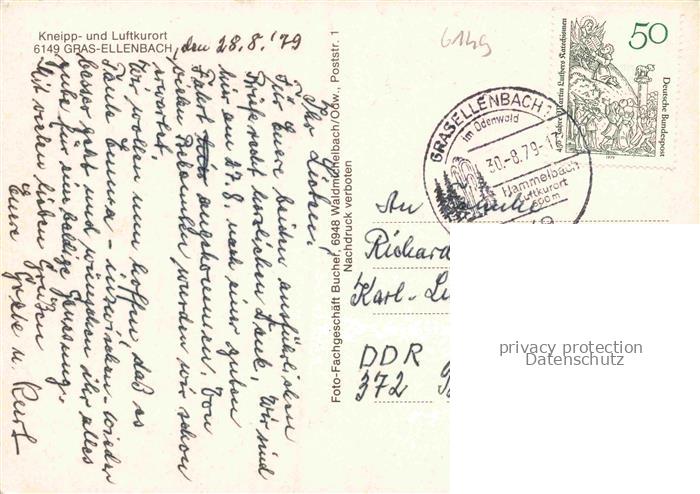 Kneipp- und Luftkurort
6149 GRAS-ELLENBACH, den 28.8.'79
Ihr Lieben,
Für Eure beiden ausführlichen
Briefe recht herzlichen Dank. Wir sind
hier am 27.8. nach einer guten
Fahrt angekommen. Von
vielen Bekannten wurden wir schon
erwartet.
Wir wollen nun hoffen, daß es
Tante Emma - inzwischen - wieder
besser geht und wünschen ihr alles
gute für eine baldige Genesung.
Mit vielen lieben Grüßen
Eure Grete u. Kurt
Foto-Fachgeschäft Bucher, 6948 Waldmichelbach/Odw., Poststr. 1
Nachdruck verboten
6149
GRASELLENBACH
im Odenwald
30-8.79-17
Hammelbach
Luftkurort
50
Deutsche Bundespost
450 Jahre Martin Luthers Katechismen
1979
An Familie
Richard
Karl-
DDR
372
privacy protection
Datenschutz